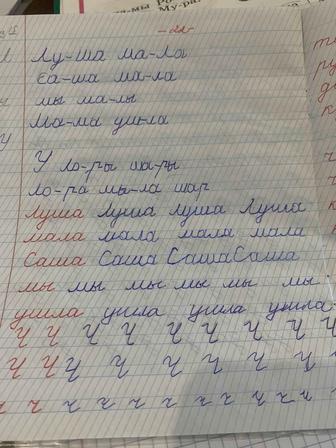 -22-
Лу-ша ма-ла
Са-ша ма-ла
мы ма-лы
Ма-ма уш-ла
У ло-ры ша-ры
ло-ра мы-ла шар
Луша Луша Луша Луша
мала мала мала мала
Саша Саша Саша Саша
мы мы мы мы мы мы
ушла ушла ушла ушла
Ч Ч Ч Ч Ч Ч Ч Ч Ч
Ч Ч Ч Ч Ч Ч Ч Ч
ч ч ч ч ч ч ч ч ч ч